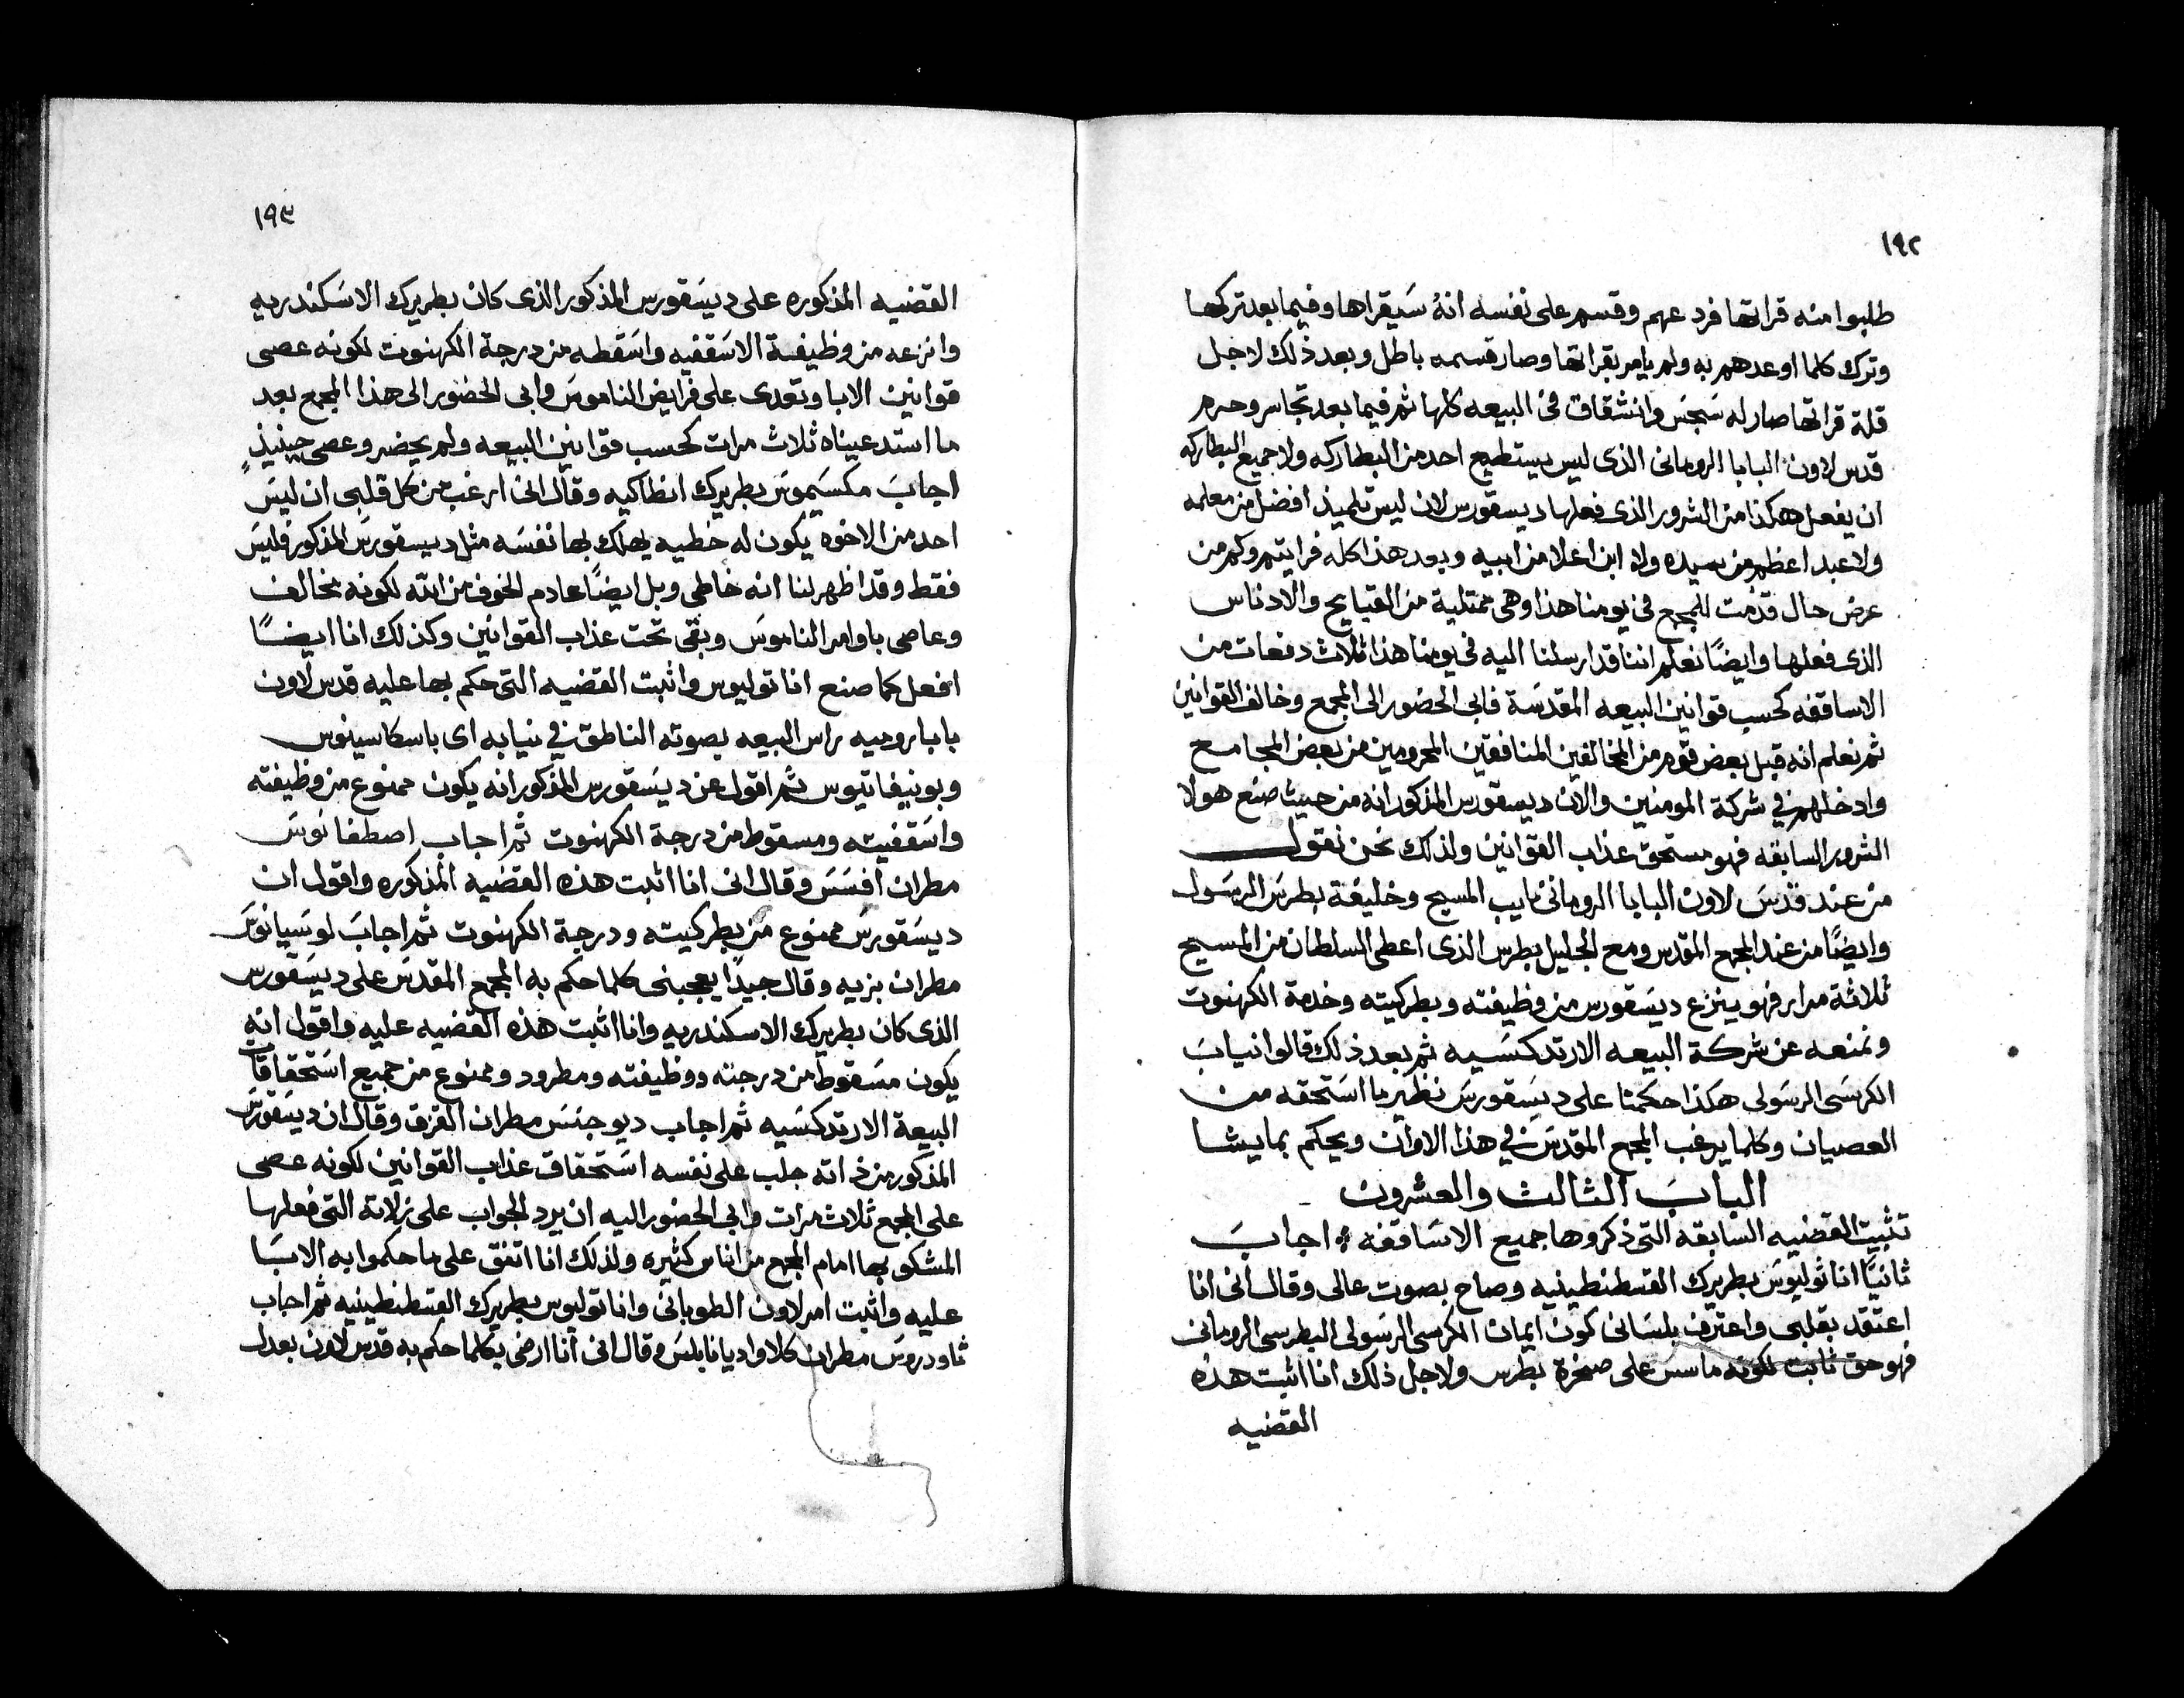 ١٩٢
طلبوا منه قراتها فرد عهم وقسم على نفسه انهُ سَيقراها وفيما بعد تركها
وترك كلما اوعدهم به ولم يامر بقراتها وصار قسمه باطل وبعد ذلك لاجل
قلة قراتها صار له سَجسَ وانشقاق فى البيعه كلها ثم فيما بعد تجاسر وحرم
قدس لاون البابا الرومانى الذى ليس يستطيع احد من البطاركه ولا جميع البطاركه
ان يفعل هكذا من الشرور الذى فعلها ديسقورس لان ليس تلميذ افضل من معلمه
ولا عبد اعظم من سيده ولا ابن اعلا من ابيه وبعد هذا كله فرايتم وكم من
عرض حال قدّمت للمجمع فى يومنا هذا وهى ممتلية من القبايح والادناس
الذى فعلها وايضًا نعلم اننا قد ارسلنا اليه فى يومنا هذا ثلاث دفعات من
الاساقفه كحسب قوانين البيعه المقدسَة فابى الحضور الى المجمع وخالف القوانين
ثم نعلم انه قبل بعض قوم من المخالفين المنافقين المحرومين من بعض المجامع
وادخلهم فى شركة المومنين والان ديسقورس المذكور انه من حيث صنع هولا
الشرور السابقه فهو مستحق عذاب القوانين ولذلك نحن نقول
من عند قدّسَ لاون البابا الرومانى نايب المسيح وخليفة بطرسَ الرسَول
وايضًا من عند المجمع المقدس ومع الجليل بطرس الذى اعطى السلطان من المسيح
ثلاثة مرار فهو ينزع ديسَقورس من وظيفته وبطركيته وخدمة الكهنوت
ونمنعه عن شركة البيعه الارتدكسَيه ثم بعد ذلك قالوا نيابَ
الكرسَى الرسَولى هكذا حكمنا على ديسَقورسَ نظير ما استَحقه من
العصيان وكلما يرغب المجمع المقدسَ فى هذا الاوان ويحكم بما يشا
البابَ الثالث والعشرون
تثبيت القضيه السابقه التى ذكروها جميع الاسَاقفه اجابَ
ثانيًا اناتوليوسَ بطريرك القسطنطينيه وصاح بصوت عالى وقال انى انا
اعتقد بقلبى واعترف بلسَانى كون ايمان الكرسى الرسَولى البطرسى الرومانى
فهو حق ثابت لكونه ماسس على صخرة بطرس ولاجل ذلك انا اثبت هذه
القضيه
١٩٣
القضيه المذكوره على ديسَقورس المذكور الذى كان بطريرك الاسَكندريه
وانزعه من وظيفة الاسَقفيه واسَقطه من درجة الكهنوت لكونه عصى
قوانين الابا وتعدى على فرايض الناموسَ وابى الحضور الى هذا المجمع بعد
ما استدعيناه ثلاث مرات كحسب قوانين البيعه ولم يحضر وعصى حينيذٍ
اجابَ مكسَيموسَ بطريرك انطاكيه وقال انى ارغب من كل قلبى ان ليسَ
احد من الاخوه يكون له خطيه يهلك بها نفسَه مثل ديسقورسَ المذكور فليسَ
فقط وقد اظهر لنا انه خاطى وبل ايضًا عادم الخوف من الله لكونه مخالف
وعاصى باوامر الناموسَ وبقى تحت عذاب القوانين وكذلك انا ايضًا
افعل كما صنع اناتوليوس واثبت القضيه التى حكم بها عليه قدس لاون
بابا روميه راس البيعه بصوته الناطق فى نيابه اى باسكاسينوس
وبونيفاتيوس ثم اقول عن ديسَقورس المذكور انه يكون ممنوع من وظيفته
واسَقفيته ومسقوط من درجة الكهنوت ثم اجاب اصطفانوسَ
مطران افسَسَ وقال انى انا اثبت هذه القضيه المذكوره واقول ان
ديسَقورسَ ممنوع من بطركيته ودرجة الكهنوت ثم اجابَ لوسَيانوسَ
مطران بزيه وقال جيدًا يعجبنى كلما حكم به المجمع المقدسَ على ديسَقورس
الذى كان بطريرك الاسكندريه وانا اثبت هذه القضيه عليه واقول انه
يكون مسَقوط من درجته ووظيفته ومطرود وممنوع من جميع استَحقاقات
البيعة الارتدكسَيه ثم اجاب ديوجنسَ مطران القزق وقال ان ديسَقورسَ
المذكور من ذاته جلب على نفسه استَحقاق عذاب القوانين لكونه عصى
على المجمع ثلاث مرات وابى الحضور اليه ان يرد الجواب على زلاتة التى فعلها
المشكو بها امام المجمع من اناس كثيره ولذلك انا اتفق على ما حكموا به الابَا
عليه واثبت امر لاون الطوبانى واناتوليوس بطريرك القسطنطينيه ثم اجاب
ثاودروسَ مطران كلاواديانابلسَ وقال انى انا ارضى بكلما حكم به قدس لاون بعدل